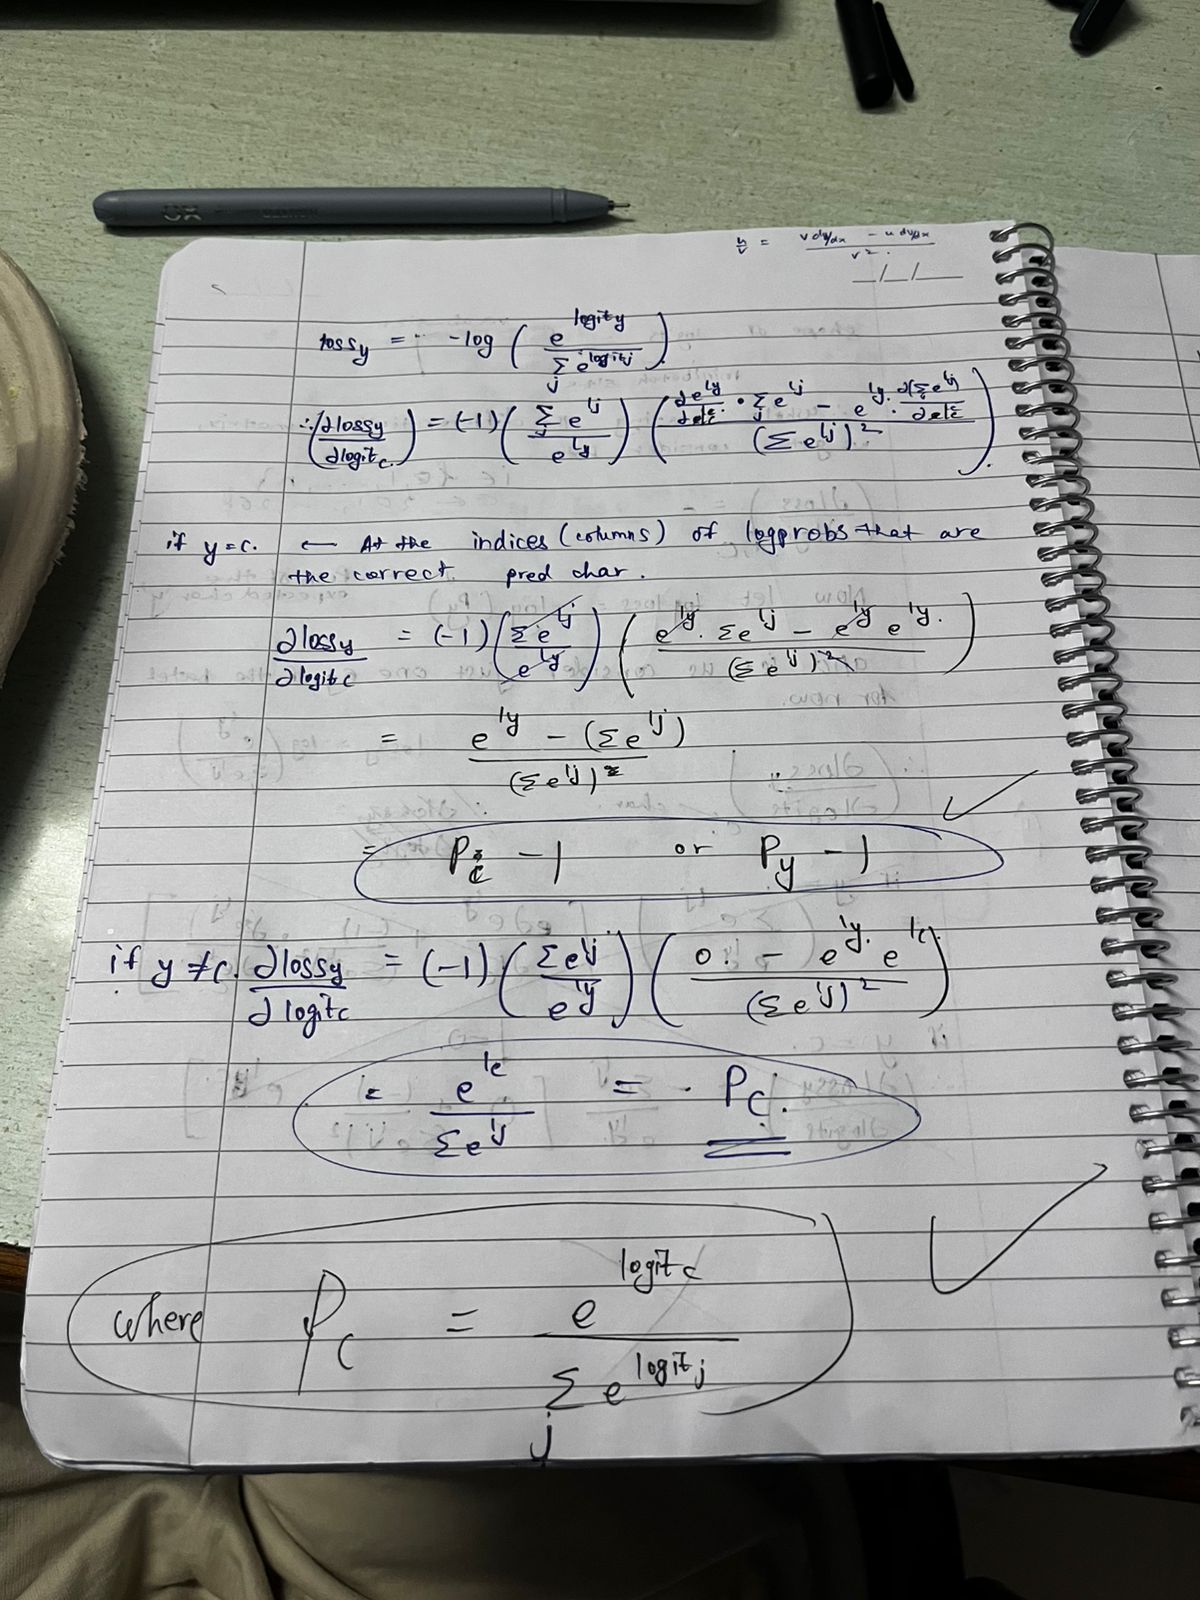 u/v = (v du/dx - u dv/dx) / v².
_/_/_
lossy = -log ( e^logity / Σj e^logitj )
∴ (∂lossy / ∂logitc) = (-1) ( Σj e^lj / e^ly ) ( ( ∂e^ly/∂elc · Σj e^lj - e^ly · ∂(Σj e^lj)/∂elc ) / (Σ e^lj)² ).
if y = c. ← At the indices (columns) of logprobs that are
the correct pred char.
∂lossy / ∂logitc = (-1) ( Σ e^lj / e^ly ) ( ( e^ly · Σe^lj - e^ly e^ly. ) / (Σ e^lj)² )
= ( e^ly - (Σe^lj) ) / (Σe^lj)
= Pc - 1 or Py - 1
if y ≠ c. ∂lossy / ∂logitc = (-1) ( Σe^lj / e^ly ) ( ( 0 - e^ly. e^lc ) / (Σe^lj)² )
= e^lc / Σe^lj = Pc.
where Pc = e^logitc / Σj e^logitj